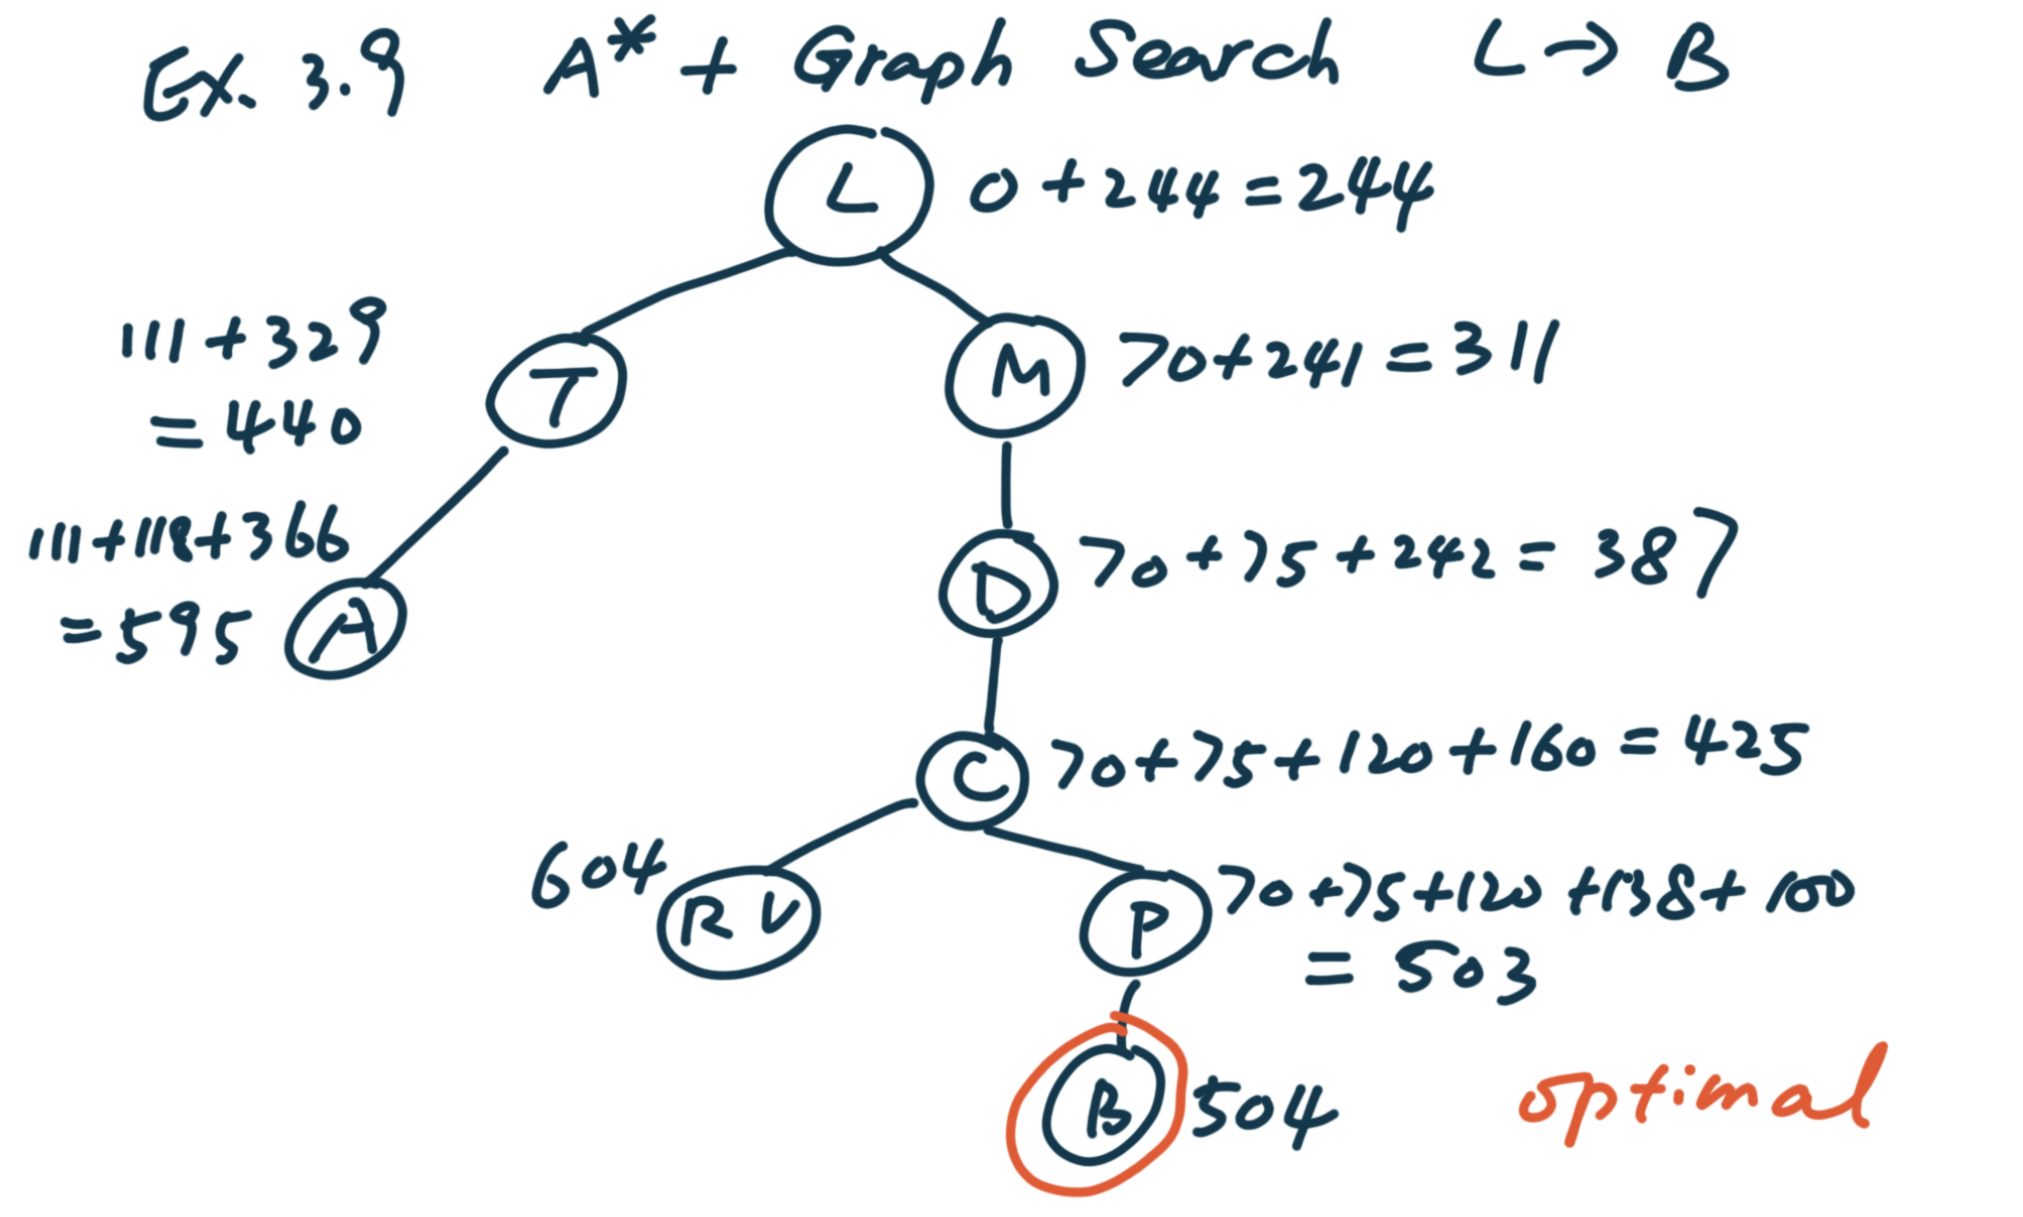 Ex. 3.9 A* + Graph Search L → B
L 0 + 244 = 244
111 + 329
= 440
T
M 70 + 241 = 311
111 + 118 + 366
= 595
A
D 70 + 75 + 242 = 387
C 70 + 75 + 120 + 160 = 425
604 RV
P 70 + 75 + 120 + 138 + 100
= 503
B 504
optimal